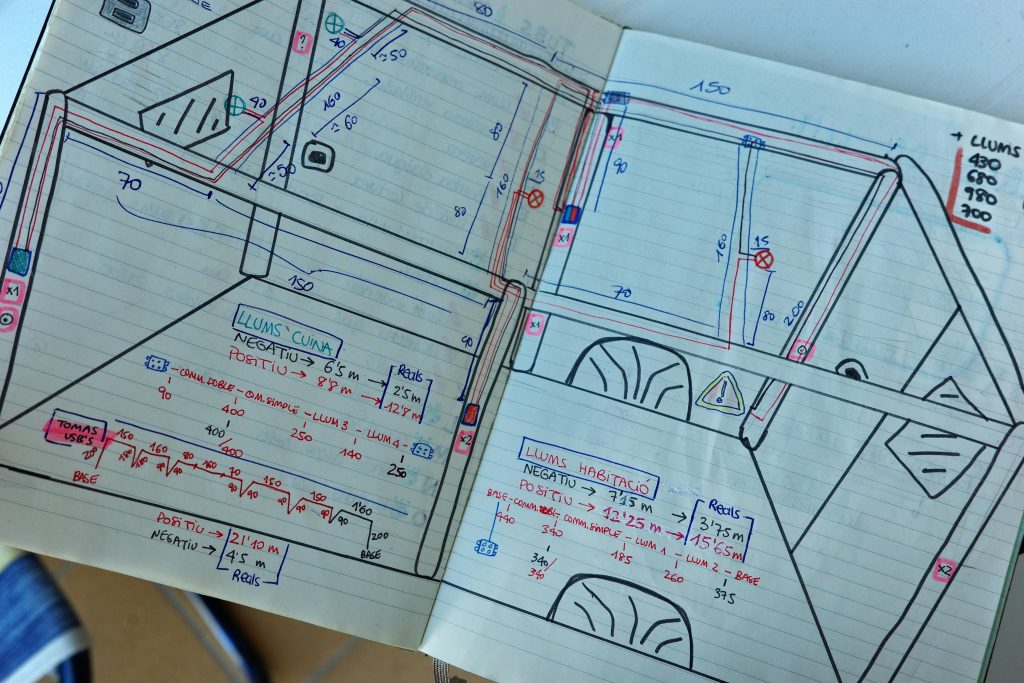 80
40
≈50
?
160
≈60
40
≈50
70
150
x1
80
160
80
15
x1
x1
90
x2
LLUMS CUINA
NEGATIU → 6'5 m →
POSITIU → 8'8 m →
REALS
2'5 m
12'8 m
-COMM. DOBLE - COM. SIMPLE - LLUM 3 - LLUM 4 -
90
400
400/400
250
140
250
TOMAS USB'S
BASE
150
160
80
160
70
150
150
1'60
90
90
90
90
200
BASE
POSITIU → 21'10 m
NEGATIU → 4'5 m
REALS
150
+ LLUMS
430
680
980
700
90
160
15
80
200
70
x1
x2
LLUMS HABITACIÓ
NEGATIU → 7'15 m →
POSITIU → 12'25 m →
REALS
3'75 m
15'65 m
BASE - COMM. DOBLE - COMM. SIMPLE - LLUM 1 - LLUM 2 - BASE
440
340
340/340
185
260
375